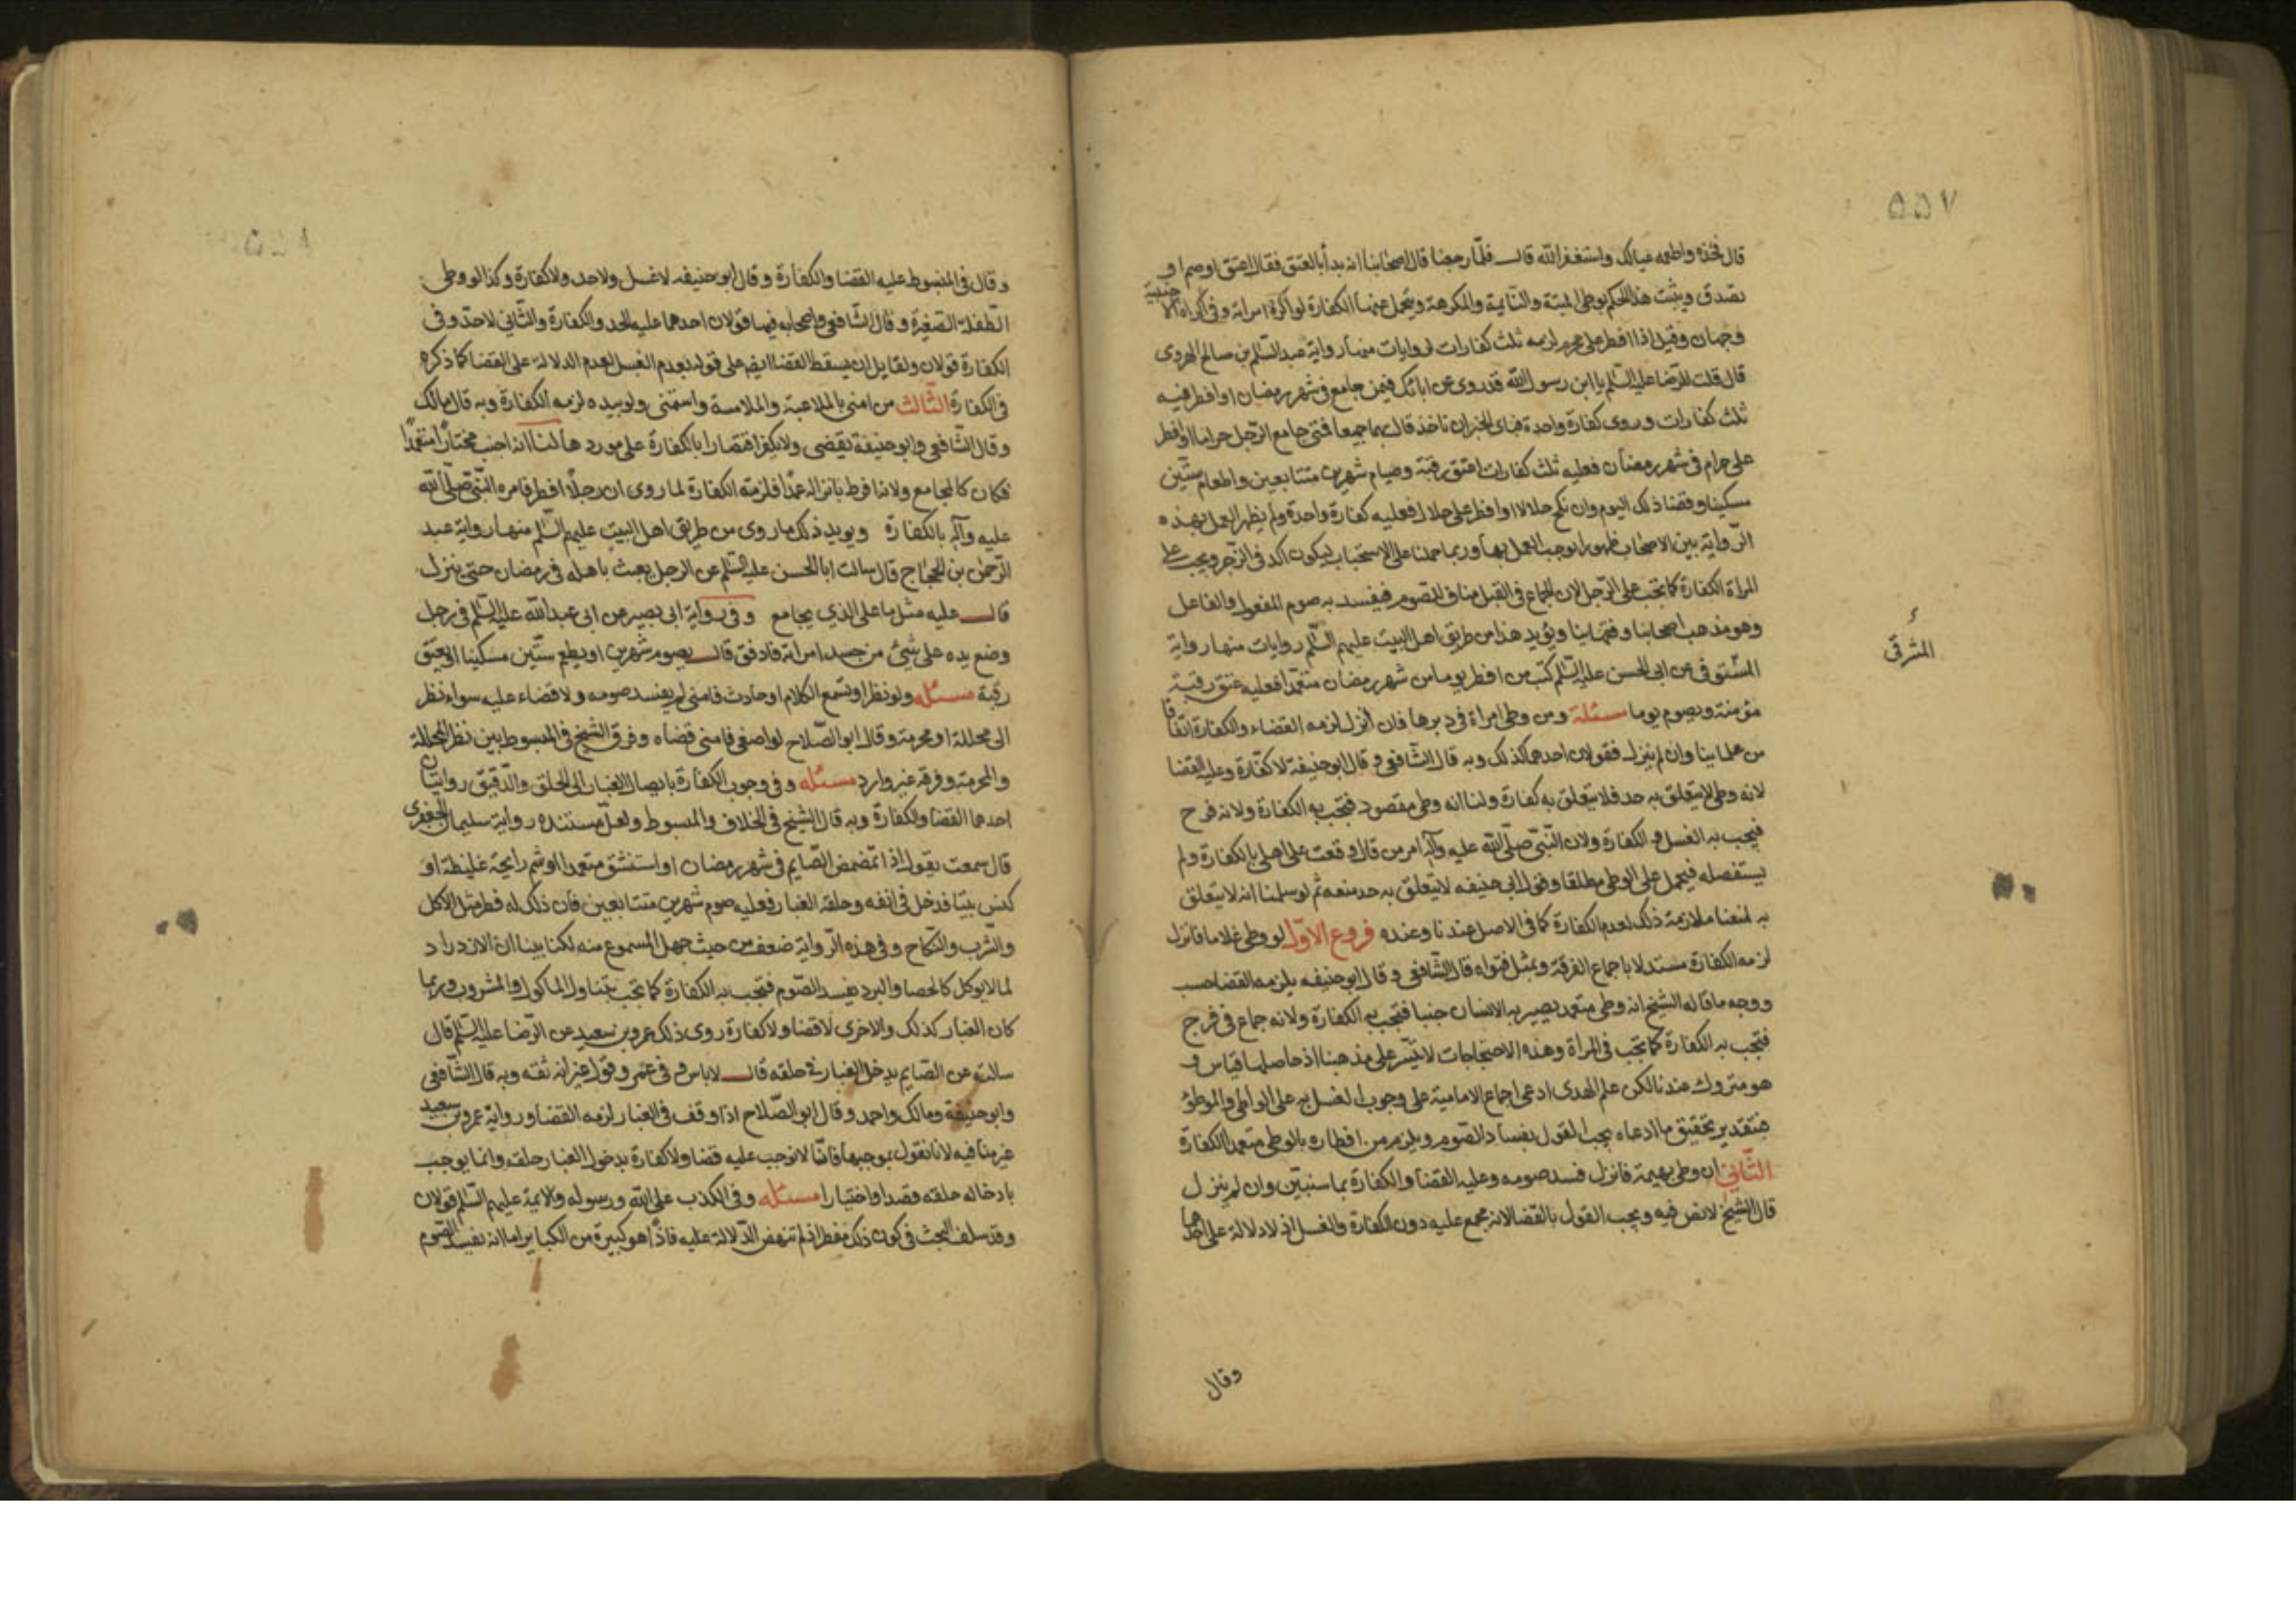 ۵۵۷
قال فخذه واطعمه عيالك واستغفر الله قال فلما رجعنا قال اصحابنا انه بدأ بالعتق فقال اعتق او صم او
تصدق ويثبت هذا الحكم بوطى الميتة والنايمة والمكرهة ويتحمل عنها الكفارة لو اكره امراته وفي اكراه الاجنبية
وجهان وقيل اذا افطر على محرم لزمه ثلث كفارات لروايات منها رواية عبد السلم بن صالح الهروى
قال قلت للرضا عليه السلم يا ابن رسول الله قد روى عن ابائك فيمن جامع في شهر رمضان او افطر فيه
ثلث كفارات وروى كفارة واحدة فباى الخبرين ناخذ قال بهما جميعا فمتى جامع الرجل حراما او افطر
على حرام في شهر رمضان فعليه ثلث كفارات اعتق رقبة وصيام شهرين متتابعين واطعام ستين
مسكينا وقضا ذلك اليوم وان نكح حلالا او افطر على حلال فعليه كفارة واحدة ولم يظهر العمل بهذه
الرواية بين الاصحاب ظهورا يوجب العمل بها وربما حملنا على الاستحباب ليكون آكد في الزجر ويجب على
المراة الكفارة كما تجب على الرجل لان الجماع في القبل مناف للصوم فيفسد به صوم المفعول والفاعل
وهو مذهب اصحابنا وفتهاينا ويؤيد هذا من طريق اهل البيت عليهم السلم روايات منها رواية
المشرقى
المشتوفى عن ابى الحسن عليه السلم كتب من افطر يوما من شهر رمضان متعمدا فعليه عتق رقبة
مؤمنة ويصوم يوما مسئلة ومن وطى امراة في دبرها فان انزل لزمه القضاء والكفارة اتفاقا
من علماينا وان لم ينزل فقولان احدهما كذلك وبه قال الشافعى وقال ابو حنيفة لا كفارة وعليه القضا
لانه وطى لا يتعلق به حد فلا يتعلق به كفارة ولنا انه وطى مقصود فتجب به الكفارة ولانه فرج
فيجب به الغسل و الكفارة ولان النبى صلى الله عليه وآله امر من قال وقعت على اهلى بالكفارة ولم
يستفصله فيحمل على الوطى مطلقا وقول ابى حنيفه لا يتعلق به حد منعه ثم لو سلمنا انه لا يتعلق
به لمنعنا ملازمة ذلك لعدم الكفارة كما في الاصل عندنا وعنده فروع الاول لو وطى غلاما فانزل
لزمه الكفارة مستدلا باجماع الفرقة وبمثل فتواه قال الشافعى وقال ابو حنيفه يلزمه القضا حسب
ووجه ما قاله الشيخ انه وطى متعمد يصير به الانسان جنبا فتجب به الكفارة ولانه جماع في فرج
فتجب به الكفارة كما تجب في المراة وهذه الاحتجاجات لا يتيسر على مذهبنا اذ حاصلها قياس و
هو متروك عندنا لكن علم الهدى ادعى اجماع الامامية على وجوب الغسل به على الواطى والموطؤ
فبتقدير تحقيق ما ادعاه يجب القول بفساد الصوم ويلزم من افطاره بالوطى متعمدا الكفارة
الثانى ان وطى بهيمة فانزل فسد صومه وعليه القضا والكفارة بما سنبين وان لم ينزل
قال الشيخ لا نص فيه ويجب القول بالقضا لانه مجمع عليه دون الكفارة والغسل اذ لا دلالة على احدهما
وقال
وقال في المبسوط عليه القضا والكفارة وقال ابو حنيفه لا غسل ولا حد ولا كفارة وكذا لو وطى
الطفلة الصغيرة وقال الشافعى واصحابه فيها قولان احدهما عليه الحد والكفارة والثانى لا حد وفى
الكفارة قولان ولقايل ان يسقط القضا ايضا على قوله بعدم الغسل لعدم الدلالة على القضا كما ذكره
في الكفارة الثالث من امنى بالملاعبة والملامسة واستمنى ولو بيده لزمه الكفارة وبه قال مالك
وقال الشافعى وابو حنيفة يقضى ولا يكفر اقتصارا بالكفارة على موردها لنا انه اجنب مختارا متعمدا
فكان كالمجامع ولانه افرط بانزاله عمدا فلزمته الكفارة لما روى ان رجلا افطر فامره النبى صلى الله
عليه وآله بالكفارة ويويد ذلك ما روى من طريق اهل البيت عليهم السلم منها رواية عبد
الرحمن بن الحجاج قال سالت ابا الحسن عليه السلم عن الرجل يعبث باهله في رمضان حتى ينزل
قال عليه مثل ما على الذي يجامع وفى رواية ابى بصير عن ابى عبد الله عليه السلم في رجل
وضع يده على شئ من جسد امراته فادفق قال يصوم شهرين او يطعم ستين مسكينا او يعتق
رقبة مسئله ولو نظر او تسمع الكلام او حادث فامنى لم يفسد صومه ولا قضاء عليه سواء نظر
الى محللة او محرمة وقال ابو الصلاح لو اصغى فامنى قضاه وفرق الشيخ في المبسوط بين نظر المحللة
والمحرمة وفرقه غير وارد مسئله وفى وجوب الكفارة بايصال الغبار الى الحلق والدقيق روايتان
احدهما القضا والكفارة وبه قال الشيخ في الخلاف والمبسوط ولعل مستنده رواية سليمان الجعفرى
قال سمعته يقول اذا تمضمض الصايم في شهر رمضان او استنشق متعمدا او شم رايحة غليظة او
كنس بيتا فدخل في انفه وحلقه الغبار فعليه صوم شهرين متتابعين فان ذلك له فطر مثل الاكل
والشرب والنكاح وفى هذه الرواية ضعف من حيث جهل المسموع منه لكنا بينا ان الازدراد
لما لا يوكل كالحصا والبرد يفسد الصوم فتجب به الكفارة كما تجب بتناول الماكول والمشروب وربما
كان الغبار كذلك والاخرى لا قضا ولا كفارة روى ذلك عمرو بن سعيد عن الرضا عليه السلم قال
سالته عن الصايم يدخل الغبار في حلقه قال لا باس و في عمر وقول غير انه ثقه وبه قال الشافعى
وابو حنيفة ومالك واحمد وقال ابو الصلاح اذا وقف في الغبار لزمه القضا ورواية عمرو بن سعيد
فيه لانا نقول بموجبها فانا لا نوجب عليه قضا ولا كفارة بدخول الغبار حلقه وانما يوجب
بادخاله حلقه قصدا واختيارا مسئله وفى الكذب على الله ورسوله والايمة عليهم السلم قولان
وقد سلف البحث في كون ذلك مفطرا فلم تنهض الدلالة عليه فاذا هو كبيرة من الكباير اما انه يفسد الصوم